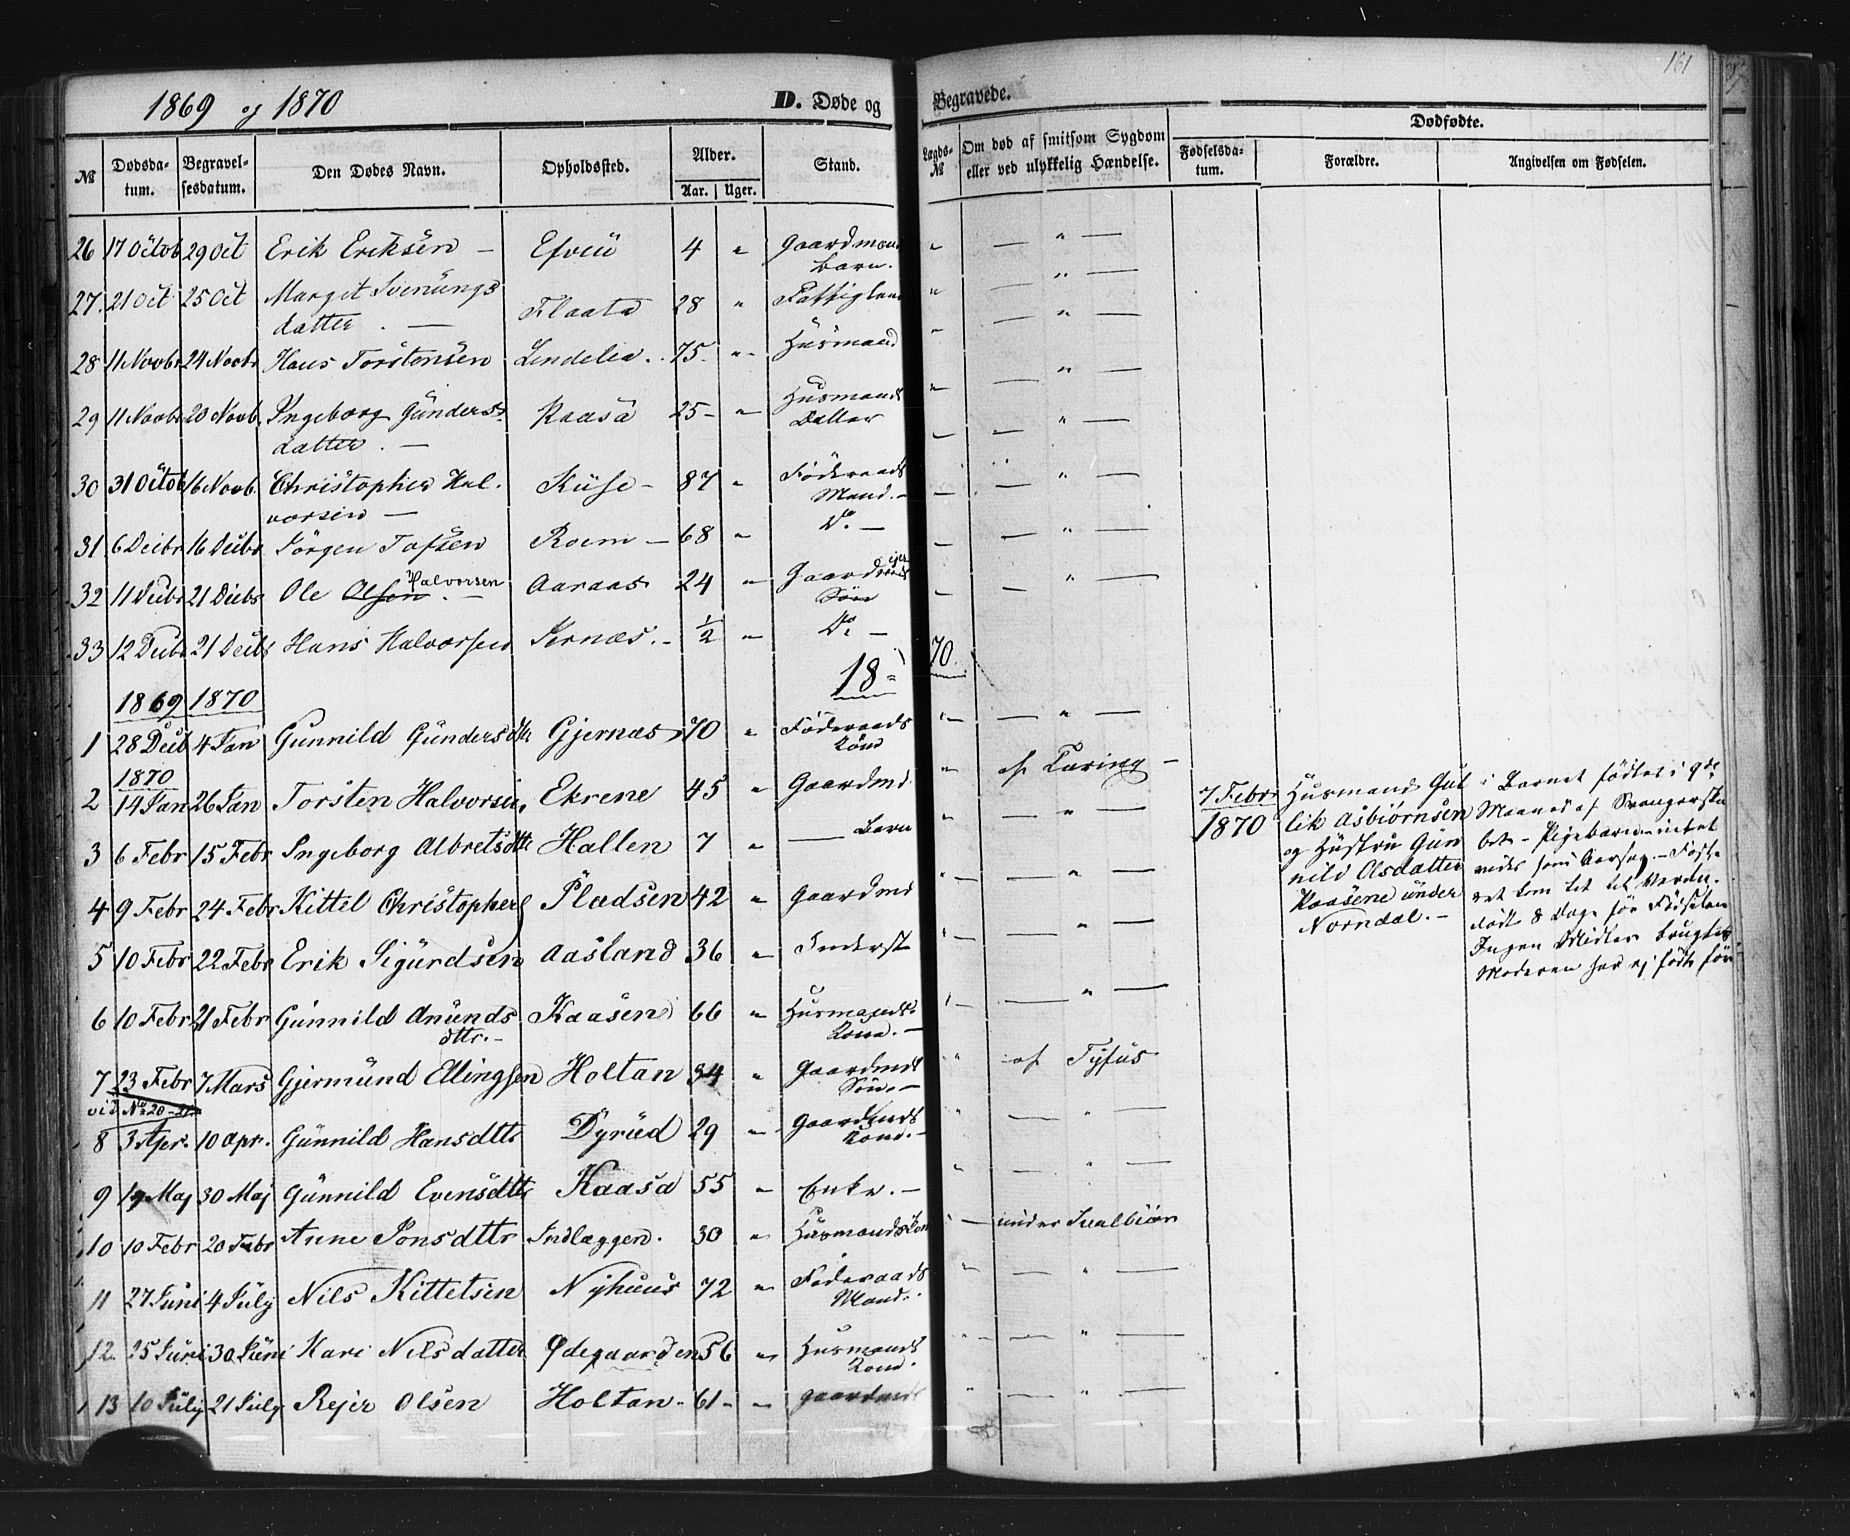 1869 og 1870
D. Døde og
Begravede.
161
№
Dødsda-
tum.
Begravel-
sesdatum.
Den Dødes Navn.
Opholdssted.
Alder.
Aar.
Uger.
Stand.
Lægds-
№
Om død af smitsom Sygdom
eller ved ulykkelig Hændelse.
Dødfødte.
Fødselsda-
tum.
Forældre.
Angivelsen om Fødselen.
26 17 Octob 29 Oct Erik Eriksen — 4 " Gaardmands
Barn.
27. 21 Oct 25 Oct Margit Svenungs
datter. — Flaata 28 "
28 11 Novbr 24 Novbr Hans Torstensen 75. " Husmand
29 11 Novbr 20 Novb. Ingeborg Gunders
datter. — Kaasa 25 - " Husmands
Datter
30 31 Octob 16 Novb. Christopher Hal-
vorsen — 87 " Föderaads
Mand. -
31 6 Decbr 16 Decbr Jörgen — 68 " Do —
32 11 Decbr 21 Decbr Ole Olsen Halvorsen — Aaraas 24 " Gaard
Sön
33 12 Decbr 21 Decbr Hans Halvorsen Jernæs. - 1/2 " Do —
18
70.
1869 1870
1 28 Decb 4 Jan Gunnild Gundersdtr Gjernæs 70 " Föderaads
Kone
1870
2 14 Jan 26 Jan Torsten Halvorsen Ekrene 45 " Gaardmd — af Tæring —
3 6 Febr 15 Febr Ingeborg Albretsdtr Hallen 7 " — Barn
4 9 Febr 24 Febr Kittel Christophers Pladsen 42 " Gaardmd
5 10 Febr 22 Febr Erik Sigurdsen Aasland 36 " Inderst
6 10 Febr 21 Febr Gunnild Anunds
dttr. - Kaasene 66 " Husmands
Kone. —
7 23 Febr 7 Mars Gjermund Ellingsen Holtan 34 " Gaardmds
Sön. — af Tyfus
vid No 20-21
8 3 Apr. 10 Apr. Gunnild Hansdttr Dyrud 29 " Gaardmds
Kone. —
9 19 Maj 30 Maj Gunnild Evensdttr Kaasa 55 " Enke. —
10 10 Febr 20 Febr Anne Jonsdttr Indlæggen. 30 " Husmands Kone
— under
11 27 Juni 4 July Nils Kittelsen Nyhuus 72 " Föderaads
Mand.
12. 25 Juni 30 Juni Kari Nilsdatter Ødegaarden 56 " Husmands
Kone.
13 10 July 21 July Rejer Olsen Holtan - 61 - " Gaardmd
7 Febr
1870
Husmand Gut
lik Asbiörnsen
og Hustru Gun
nild Olsdatter
Kaasene under
Norndal. —
Barnet födtes i 9de
Maaned af Svangerska
bet - Pigebarn - intet
vides som Aarsag. - Fost
ret kom til Verden
dödt 8 Dage för Födselen
Ingen Midler brugtes
Moderen har ej födt för